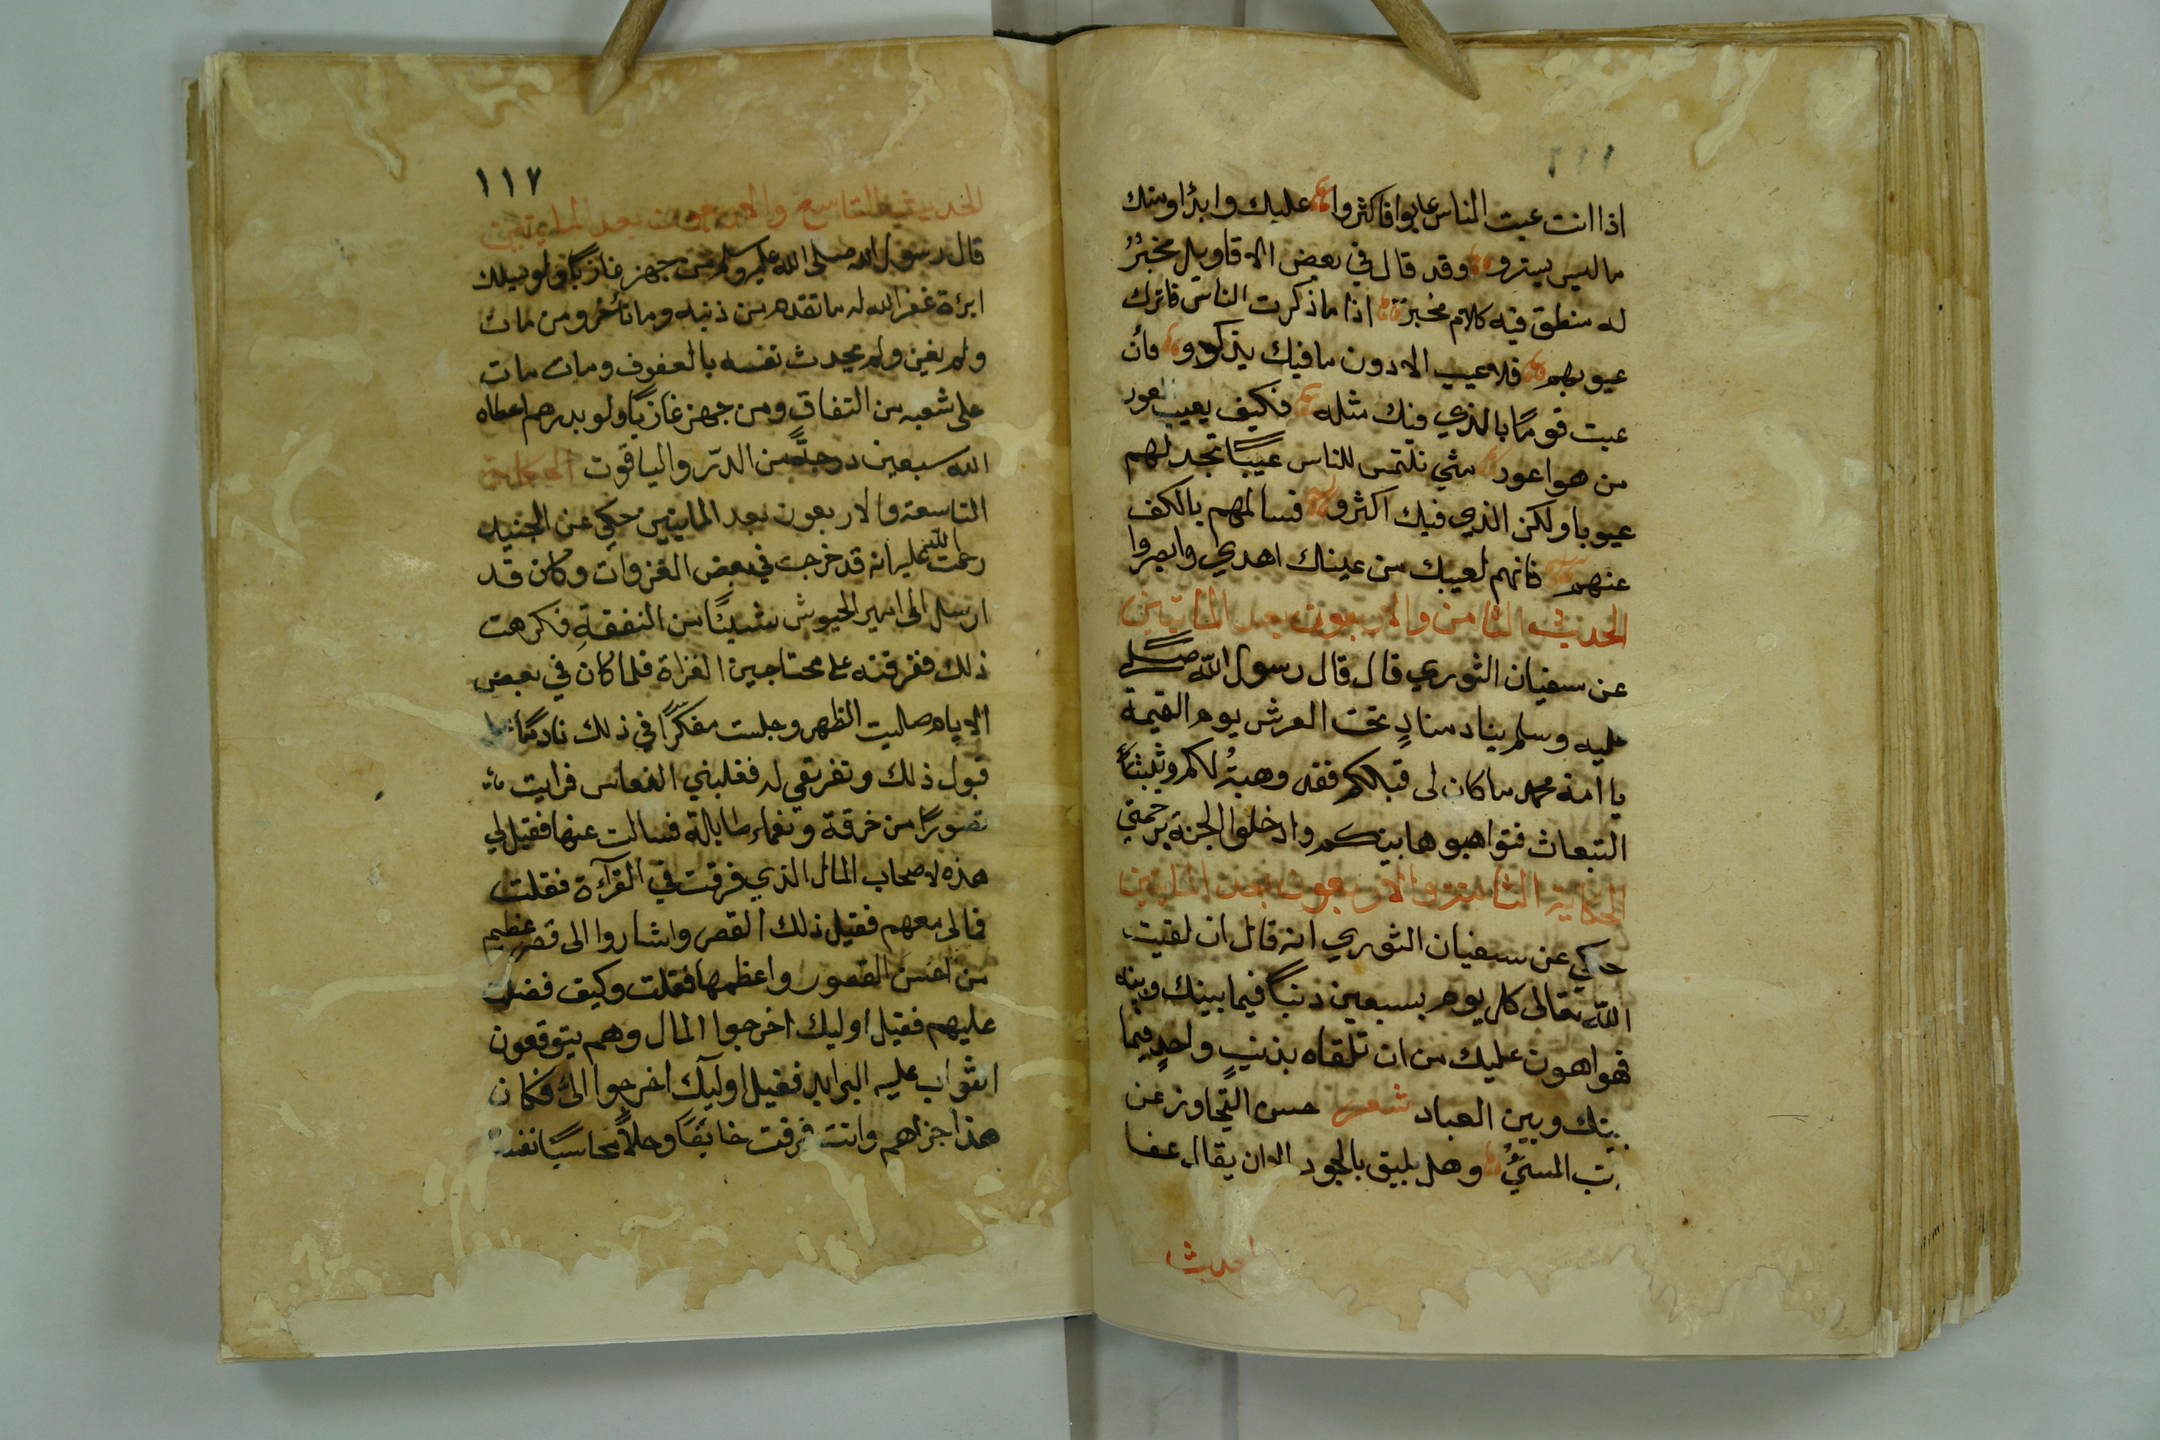 اذا انت عبت الناس عابوا فاكثروا عليك وابدوا منك
ما ليس يستر وقد قال في بعض الاقاويل مخبرٌ
له منطق فيه كلام مخبر اذا ما ذكرت الناس فاترك
عيوبهم فلا عيب الا دون ما فيك يذكر وفان
عبت قومًا بالذي فيك مثله فكيف يعيب العور
من هو اعور متي تلتمس للناس عيبًا تجد لهم
عيوبا ولكن الذي فيك اكثر فسالمهم بالكف
عنهم فانهم لعيبك من عينك اهدي وابصروا
الحديث الثامن والاربعون بعد المايتين
عن سفيان الثوري قال قال رسول الله صلى
عليه وسلم يناد منادٍ تحت العرش يوم القيمة
يا امة محمد ما كان لى قبلكم فقد وهبتُ لكم وبقيت
التبعات فتواهبوها بينكم وادخلوا الجنة برحمتي
الحكاية الثامنة والاربعون بعد المايتين
حكي عن سفيان الثوري انه قال ان لقيت
الله تعالى كل يوم بسبعين ذنبًا فيما بينك وبينه
فهو اهون عليك من ان تلقاه بذنبٍ واحدٍ فيما
بينك وبين العباد شعر حسن التجاوز عن
المسيُّ وهل يليق بالجود الا ان يقال عفا
الحديث
١١٧
الحديث التاسع والاربعون بعد المايتين
قال رسول الله صلى الله عليه وسلم من جهز غازيًا ولو بسلك
ابرة غفر الله له ما تقدم من ذنبه وما تأخر ومن مات
ولم يغين ولم يحدث نفسه بالعفوف ومات مات
على شعبه من النفاق ومن جهز غازيًا ولو بدرهم اعطاه
الله سبعين درجةً من الدرّ والياقوت الحكاية
التاسعة والاربعون بعد المايتين حكي عن الجنيد
رحمت الله عليه انه قد خرجت في بعض الغزوات وكان قد
ارسل الى امير الجيوش شيئًا من النفقةِ فكرهت
ذلك ففرقته على محتاجين الغزاة فلما كان في بعض
الايام صليت الظهر وجلست مفكرًا في ذلك نادمًا على
قبول ذلك وتفريقي له فغلبني النعاس فرايت
قصورًا من خرقة ونعماء طايلة فسالت عنها فقيل لي
هذه لاصحاب المال الذي فرقت في القرآة فقلت
فالى معهم فقيل ذلك القصر واشاروا الى قصر عظيم
من احسن القصور واعظمها فقلت وكيف فضلت
عليهم فقيل اوليك اخرجوا المال وهم يتوقعون
الثواب عليه البرايد فقيل اوليآك اخرجوا الى فكان
هذا جزاهم وانت فرقت خايفًا وجلاً محاسبًا نفسك